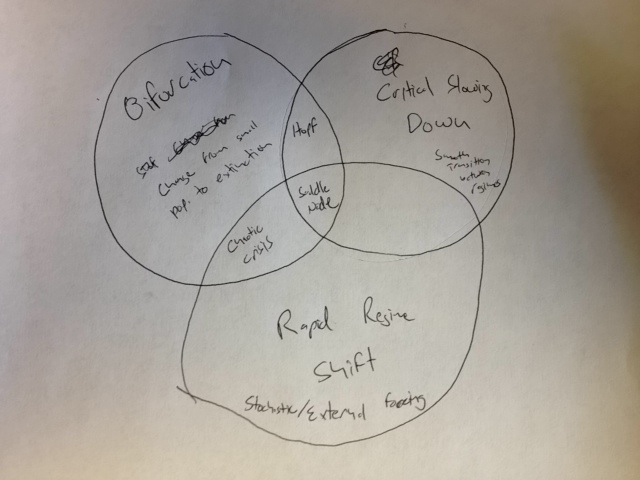 Bifurcation
Change from small
pop. to extinction
Critical Slowing
Down
Smooth
transition
between
regimes
Hopf
Saddle
Node
Chaotic
crisis
Rapid Regime
Shift
Stochastic/External forcing